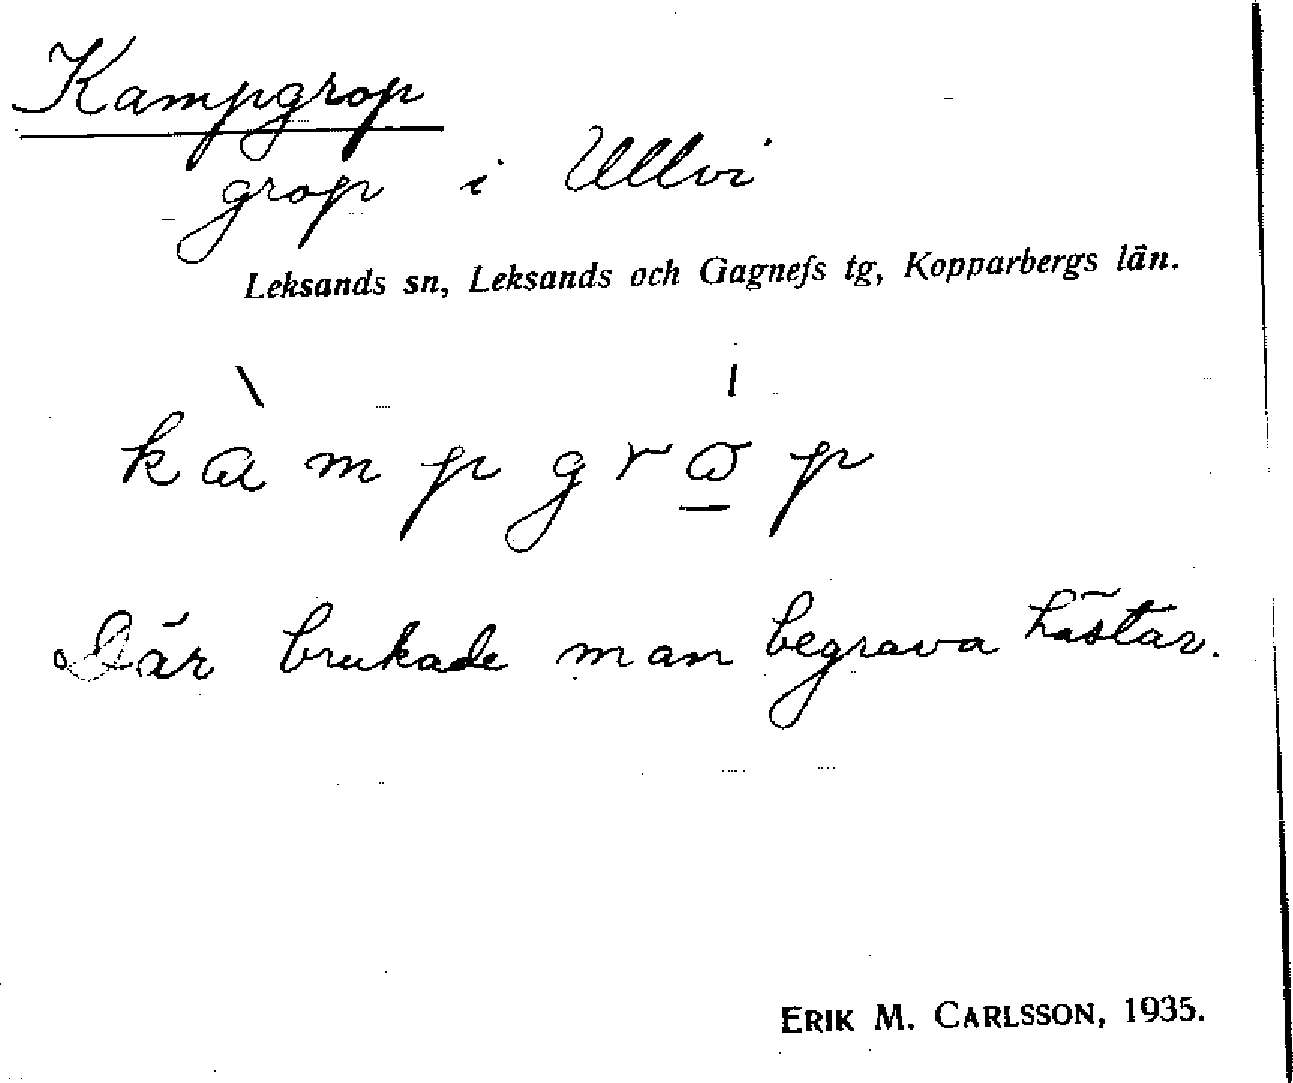 Kampgrop
grop i Ullvi
Leksands sn, Leksands och Gagnefs tg, Kopparbergs län.
kàmpgro̲p
Där brukade man begrava hästar.
ERIK M. CARLSSON, 1935.